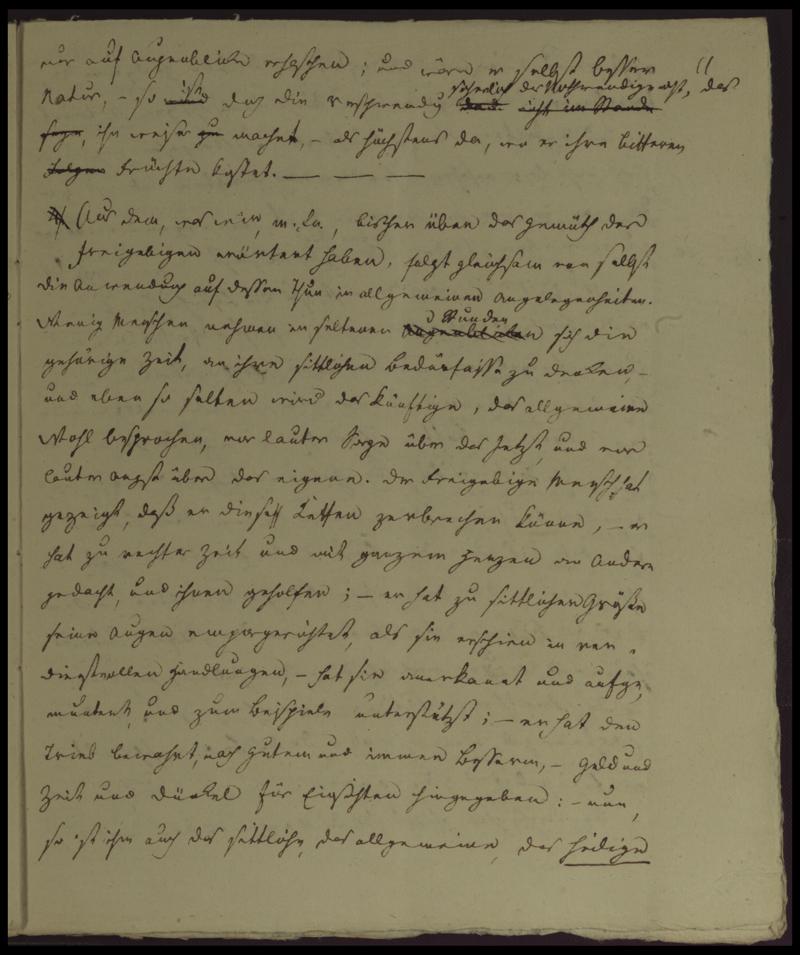 nur auf Augenblicke erhaschen; und wäre er selbst besserer
Natur, – so ist doch die sicherlich der Nothwendige nicht, das
ihn weiser zu machen, – als höchstens da, wo er ihre bitteren
Folgen Früchte kostet. — — —
Aus dem, was wir, m. Ln., bisher über das Gemüth des
Freigebigen erörtert haben, folgt gleichsam von selbst
die Anwendung auf dessen Thun in allgemeinen Angelegenheiten.
Wenig Menschen nehmen in seltenen Stunden sich die
gehörige Zeit, an ihre sittlichen Bedürfnisse zu denken, –
und eben so selten wird das Künftige, das allgemeine
Wohl besprochen, vor lauter Sorge über das Jetzt, und vor
lauter Angst über das eigene. Der Freigebige Mensch hat
gezeigt, daß er diese Ketten zerbrechen könne, – er
hat zu rechter Zeit und mit ganzem Herzen an Andere
gedacht, und ihnen geholfen; – er hat zu sittlicher Größe
seine Augen emporgerichtet, als sie erschien in ver-
dienstvollen Handlungen, – hat sie anerkannt und aufge-
muntert, und zum Beispiele unterstützt; – er hat den
Trieb bewahrt, nach Gutem und immer Besserm, – Geld und
Zeit und Dünkel für Einsichten hingegeben: – nun,
so ist ihm auch das sittliche, das allgemeine, das heilige